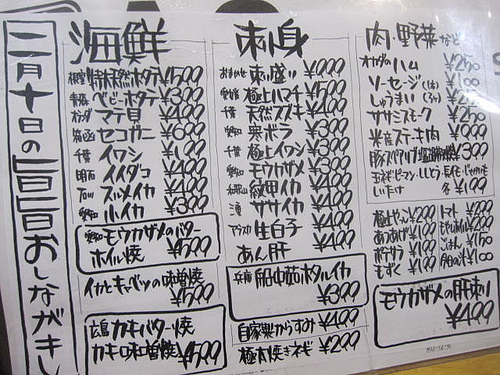 二月十日の旨旨おしながき
海鮮
特大天然ホタテ ¥500
青森 ベビーホタテ ¥300
マテ貝 ¥400
セコガニ ¥600
千葉 イワシ ¥100
明石 イイダコ ¥400
石川 スルメイカ ¥400
愛知 小イカ ¥300
愛知 モウカザメのバター
ホイル焼 ¥500
イカとキャベツの味噌焼
¥500
広島 カキバター焼
カキ味噌焼 ¥500
刺身
おまかせ 刺し盛り
極上ハマチ ¥500
千葉 天然スズキ ¥400
愛知 寒ボラ ¥300
千葉 極上イワシ ¥300
愛知 モウカザメ ¥300
紋甲イカ ¥400
ササイカ ¥400
アラスカ 生白子 ¥400
あん肝 ¥400
兵庫 船中茹ホタルイカ
¥300
自家製からすみ ¥400
極太焼きネギ ¥200
肉・野菜など
オカダのハム ¥250
ソーセージ
しゅうまい
ササミスモーク ¥250
米産ステーキ肉
¥300
玉ネギ・ピーマン・ししとう・長芋・じゃがいも
しいたけ 各 ¥100
あつあげ ¥100
ポテサラ ¥100
もずく ¥100
トマト ¥200
ごはん ¥150
モウカザメの肝刺し
¥400